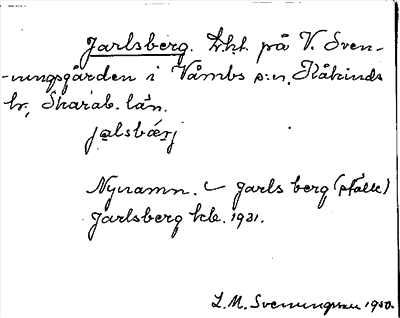 Jarlsberg. Lht. på V. Sven-
-ningsgården i Våmbs s:n, Kåkinds
hr, Skarab. län.
jalsbærj
Nynamn. Jarlsberg (ställe)
Jarlsberg kbl. 1931.
L. M. Svenungsson 1950.